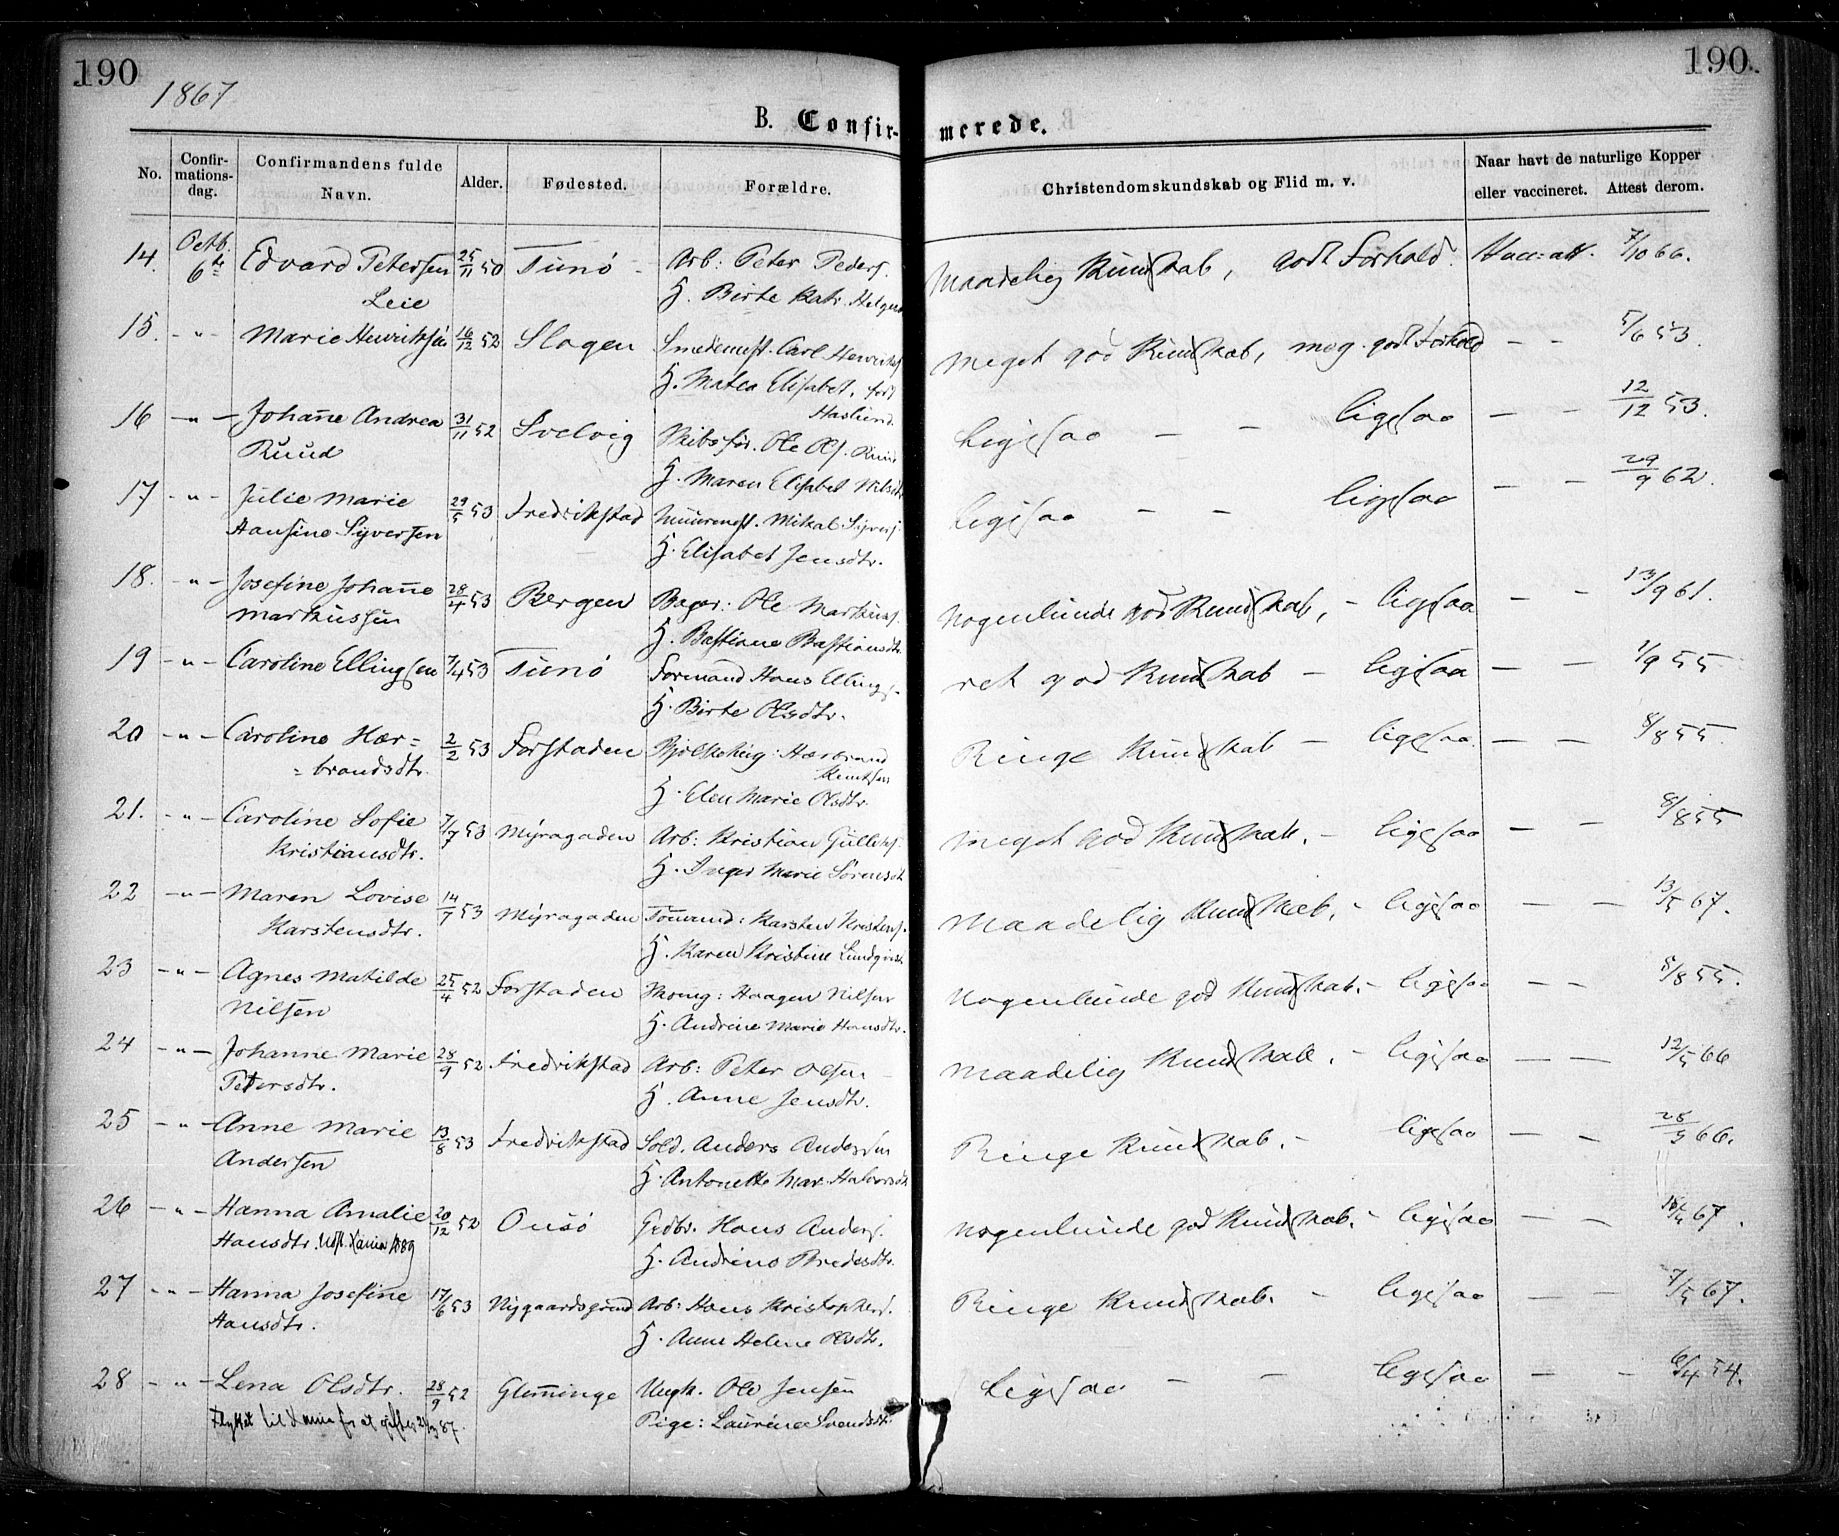 190
190.
1867
B. Confir-
merede.
No.
Confir-
mations-
dag.
Confirmandens fulde
Navn.
Alder.
Fødested.
Forældre.
Christendomskundskab og Flid m. v.
Naar havt de naturlige Kopper
eller vaccineret. Attest derom.
14. Octb. Edvard Petersen 25/11 50 Tunø - Arb: Peter Peders. Maadelig Kundskab, godt Forhold. Vacc: att. 7/10 66.
6te Leie H. Birte Katr. Helges
15. - " - Marie Henriksen 16/12 52 Slagen Smedemest. Carl Henriks. Meget god Kundskab, meg. godt Forhold - - 5/6 53.
H. Matea Elisabet, født
Haslund
16 - " - Johanne Andrea 31/11 52 Svelvig Skibsfør. Ole Ols. Ruud Ligesaa - - ligesaa - - 12/12 53.
Ruud H. Maren Elisabet Nilsdtr
17 - " - Julie Marie 29/5 53 Fredrikstad Muurmest. Mikal Syvers. Ligesaa - - ligesaa - - 29/9 62.
Hansine Syversen H. Elisabet Jensdtr.
18. - " - Josefine Johanne 28/4 53 Bergen Bager: Ole Markus. Nogenlunde god Kundskab, - ligesaa - - 13/9 61.
Markussen H. Bastiane Bastiansdtr.
19 - " - Caroline Ellingsen 7/4 53 Tunø Formand Hans Ellings. ret god Kundskab - ligesaa - - 1/9 55
H. Birte Olsdtr.
20 - " - Caroline Hær= 2/2 53 Forstaden Hærbrand Ringe Kundskab - ligesaa - - 8/8 55.
= brandsdtr. Knutsen
H. Elen Marie Olsdtr.
21. - " - Caroline Sofie 7/7 53 Myragaden Arb: Kristian Gulliks. Meget god Kundskab. - ligesaa - - 8/8 55
Kristiansdtr. H. Inger Marie Sørensdtr
22 - " - Maren Lovise 14/7 53 Myragaden Tømand: Karsten Kristens. Maadelig Kundskab, - ligesaa - - 13/5 67.
Karstensdtr. H. Karen Kristine Lundqvist
23 - " - Agnes Matilde 25/4 52 Forstaden Haagen Nilsen Nogenlunde god Kundskab. - ligesaa - - 8/8 55.
Nilsen H. Andrine Marie Hansdtr.
24 - " - Johanne Marie 28/9 52 Fredrikstad Arb: Peter Olsen - Maadelig Kundskab. - ligesaa - - 12/5 66
Petersdtr. H. Anne Jensdtr.
25 - " - Anne Marie 13/8 53 Fredrikstad Sold. Anders Andersen Ringe Kundskab. - ligesaa - - 28/9 66.
Andersen H. Antonette Mar. Halvorsdtr
26 - " - Hanna Amalie 20/12 52 Onsø Grdbr. Hans Anders. Nogenlunde god Kundskab. - ligesaa - - 67.
Hansdtr. Udst. 1889 H. Andrine Bredesdtr.
27 - " - Hanna Josefine 17/6 53 Nygaardsgrund Arb: Hans Kristophers. Ringe Kundskab. - ligesaa - - 7/5 67.
Hansdtr. H. Anne Helene Olsdtr.
28 - " - Lena Olsdtr. 28/9 52 Glemminge Ungk. Ole Jensen Ligesaa - - ligesaa - - 6/4 54.
Flyttet til for at giftes 87. Pige: Laurine Svendsdtr.